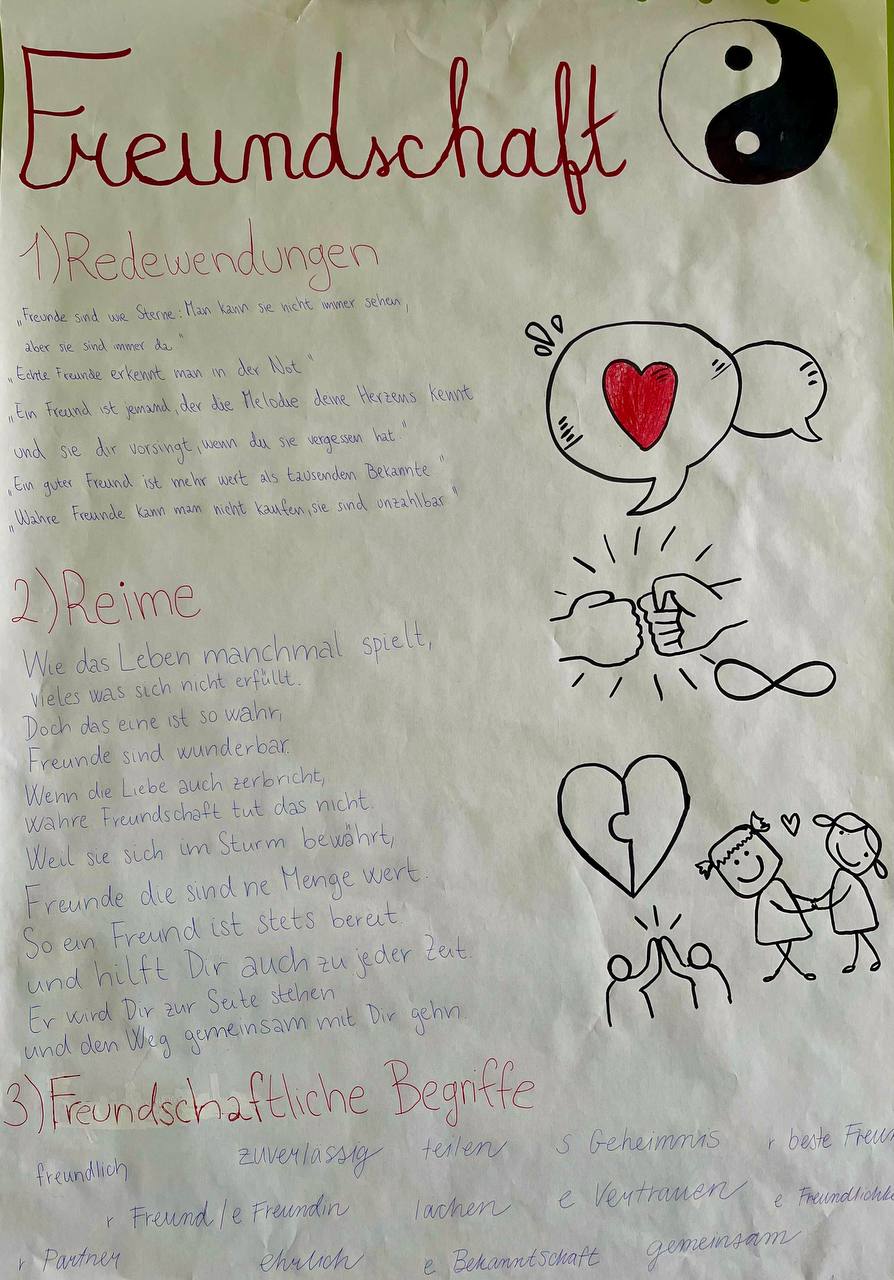 Freundschaft
1) Redewendungen
„Freunde sind wie Sterne: Man kann sie nicht immer sehen,
aber sie sind immer da"
„Echte Freunde erkennt man in der Not"
„Ein Freund ist jemand, der die Melodie deine Herzens kennt
und sie dir vorsingt, wenn du sie vergessen hat."
„Ein guter Freund ist mehr wert als tausenden Bekannte"
„Wahre Freunde kann man nicht kaufen, sie sind unzahlbar"
2) Reime
Wie das Leben manchmal spielt,
vieles was sich nicht erfüllt.
Doch das eine ist so wahr,
Freunde sind wunderbar.
Wenn die Liebe auch zerbricht,
wahre Freundschaft tut das nicht.
Weil sie sich im Sturm bewährt,
Freunde die sind ne Menge wert.
So ein Freund ist stets bereit.
und hilft Dir auch zu jeder Zeit.
Er wird Dir zur Seite stehen
und den Weg gemeinsam mit Dir gehn.
3) Freundschaftliche Begriffe
freundlich zuverlässig teilen s Geheimnis r beste Freun
r Freund/e Freundin lachen e Vertrauen e Freundlichke
r Partner ehrlich e Bekanntschaft gemeinsam